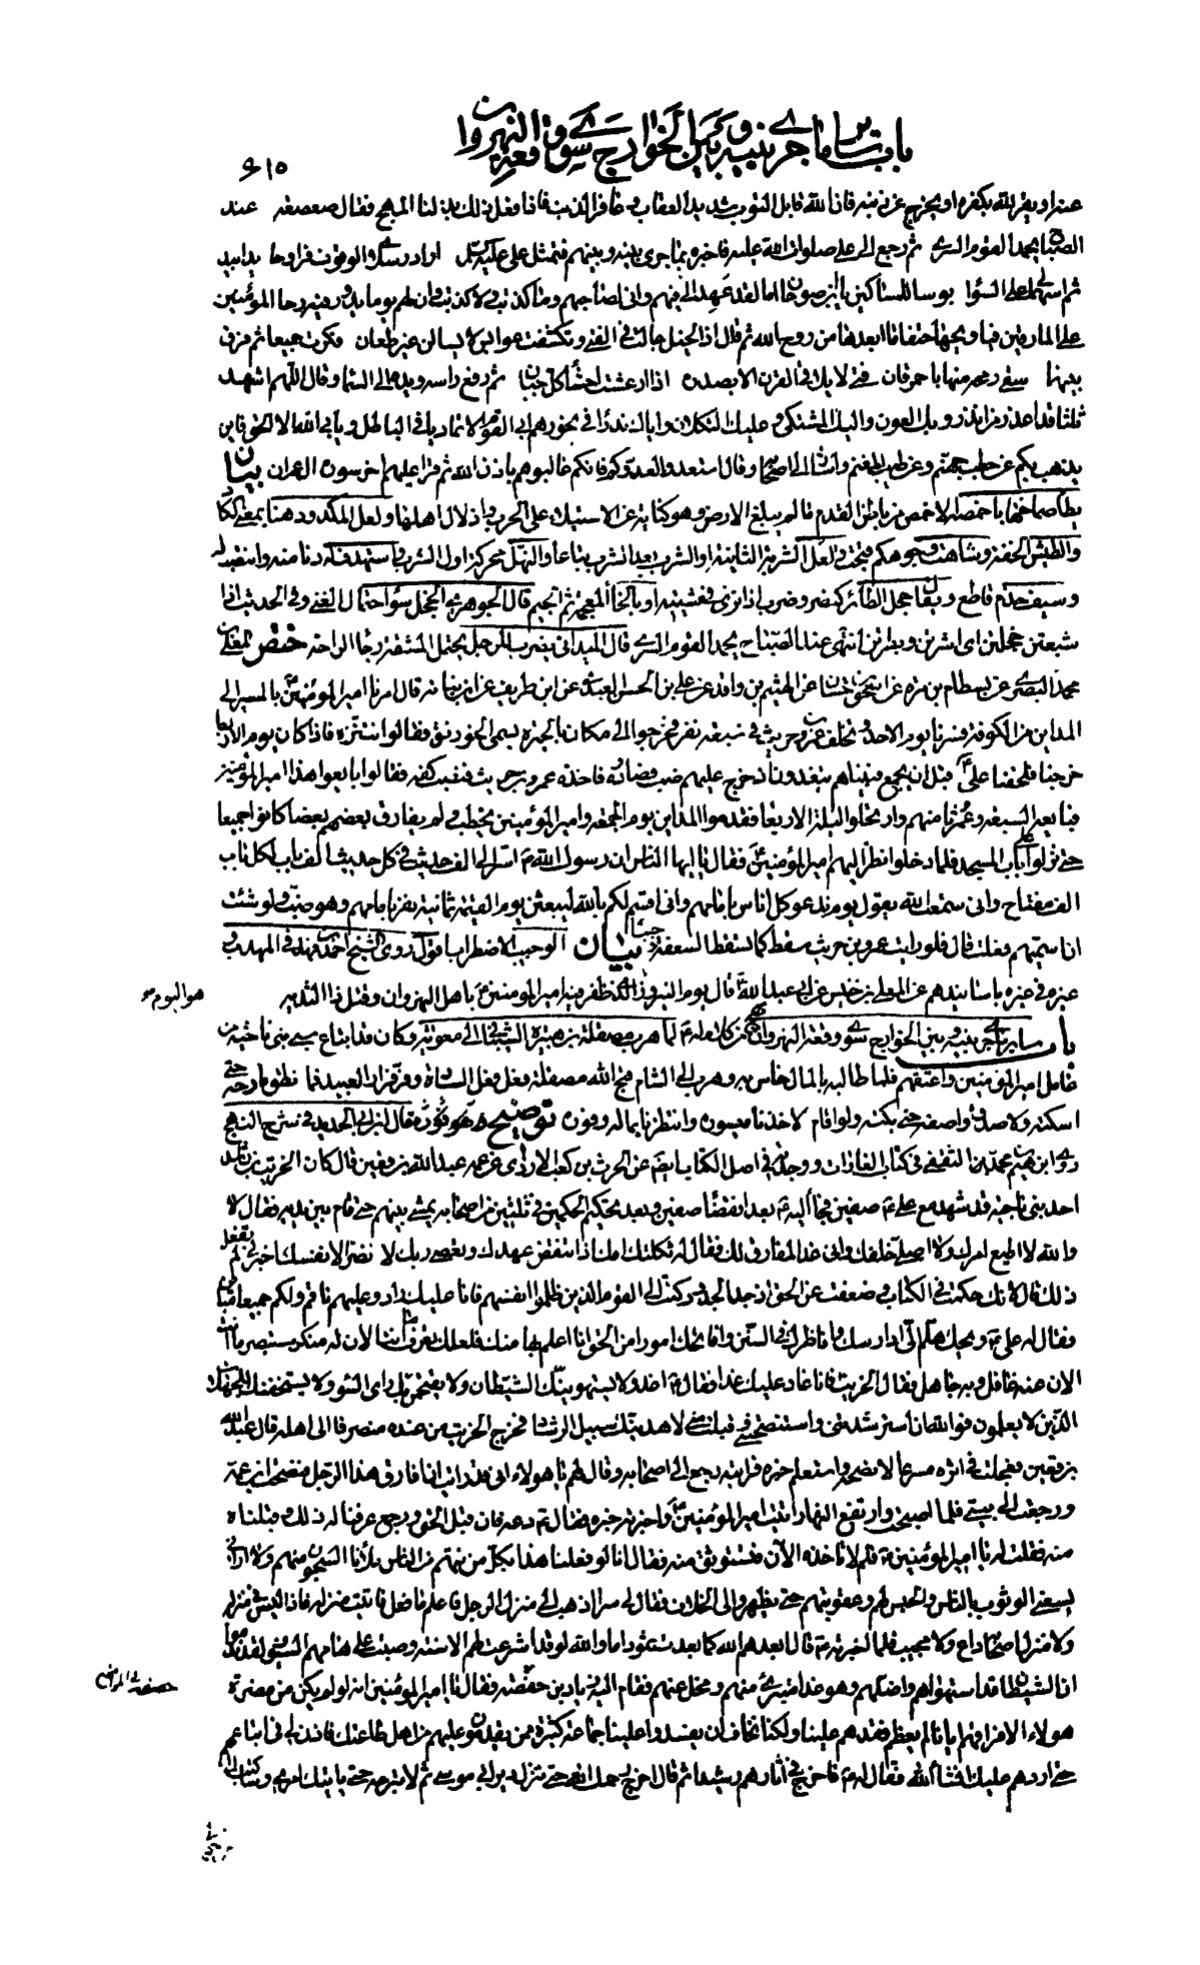 باب سائر ما جرى بينه وبين الخوارج سوى وقعة النهروان
٦١٥
عنه او يغر الله بكفره او يخرج عزى منه فان الله قابل التوب شديد العقاب غافر الذنب فاذا فعل ذلك بذلنا المهج فقال صعصعة عند
الصباح يحمد القوم السرى ثم رجع الى على صلوات الله عليه فاخبره بما جرى بينه وبينهم فتمثل على عليه السلم اراد رسولى الوقوف فراوحا يدا بيد
ثم اسهما لى على السوا بؤسا للمساكين يا ابن صوحان اما لقد عهد الى فيهم وانى لصاحبهم وما كذبت ولا كذبت وان لهم يوما يدور فيه رحا المؤمنين
على المارقين فيا ويحها حتفا ما ابعدها من روح الله ثم قال اذا الخيل جالت فى الفتى وتكشفت عوابس لا يسالن غير طعان فكرت جميعا ثم فرق
بينها سقى رمحه منها باحمر قان فتى لا يلاقى القرن الا بصدره اذا ارعشت احشاء كل جبان ثم رفع راسه ويديه الى السماء وقال اللهم اشهد
ثلثا قد اعذر من انذر وبك العون واليك المشتكى وعليك التكلان واياك ندرأ فى نحورهم ابى القوم الا تماديا فى الباطل ويابى الله الا الحق فاين
يذهب بكم عن حطب جهنم وعن طيب المغنم واشار الى اصحابه وقال استعدوا لعدوكم فانكم غالبوهم باذن الله ثم قرا عليهم اخر سورة ال عمران بيان
يطا صماخها باخمصه الاخمص من باطن القدم ما لم يبلغ الارض وهو كناية عن الاستيلاء على الحرب واذلال اهلها ولعل المكدود هنا بمعنى الكاد
والطيش الخفة وشاهت وجوهكم قبحت والعل الشربة الثانية او الشرب بعد الشرب تباعا والنهل محركة اول الشرب واستهدف له دنا منه وانتصب له
وسيف حذم قاطع ويقال حجل الطائر كنصر وضرب اذا نزى فى مشيته او بالخاء المعجمة ثم الجيم قال الجوهرى الخجل سوء احتمال الغنى وفى الحديث اذا
شبعتن خجلتن اى اشرتن وبطرتن انتهى عند الصباح يحمد القوم السرى قال الميدانى يضرب للرجل يحتمل المشقة رجاء الراحة ختص المعلى بن
محمد البصرى عن بسطام بن مره عن اسحق بن حسان عن الهيثم بن واقد عن على بن الحسن العبدى عن ابن طريف عن ابن نباته قال امرنا امير المؤمنين بالمسير الى
المداين من الكوفة فسرنا يوم الاحد وتخلف عمرو بن حريث فى سبعة نفر فخرجوا الى مكان بالحيرة يسمى الخورنق فقالوا نتنزه فاذا كان يوم الاربعا
خرجنا فلحقنا عليا قبل ان يجمع فبيناهم يتغدون اذ خرج عليهم ضب فصادوه فاخذه عمرو بن حريث فنصب كفه فقالوا بايعوا هذا امير المؤمنين
فبايعه السبعة وعمرو ثامنهم وارتحلوا ليلة الاربعا فقدموا المداين يوم الجمعة وامير المؤمنين يخطب ولم يفارق بعضهم بعضا كانوا جميعا
حتى نزلوا على باب المسجد فلما دخلوا نظر اليهم امير المؤمنين فقال يا ايها الناس ان رسول الله ص اسر الى الف حديث فى كل حديث الف باب لكل باب
الف مفتاح وانى سمعت الله يقول يوم ندعو كل اناس بامامهم وانى اقسم لكم بالله ليبعثن يوم القيمة ثمانية نفر بامامهم وهو ضب ولو شئت
ان اسميهم فعلت قال فلو رايت عمرو بن حريث سقط كما تسقط السعفة وجيبا بيان الوجيب الاضطراب اقول روى الشيخ احمد بن فهد فى المهذب و
غيره فى غيره باسانيدهم عن المعلى بن خنيس عن ابى عبد الله ع قال يوم النيروز هو اليوم الذى ظفر فيه امير المؤمنين ع باهل النهروان وقتل ذا الثدية
باب ساير ما جرى بينه وبين الخوارج سوى وقعة النهروان نهج من كلام له ع لما هرب مصقلة بن هبيرة الشيبانى الى معوية وكان قد ابتاع سبى بنى ناجية من
عامل امير المؤمنين واعتقهم فلما طالبه بالمال خاس به وهرب الى الشام قبح الله مصقلة فعل فعل السادة وفر فرار العبيد فما نطق مادحه حتى
اسكته ولا صدق واصفه حتى بكته ولو اقام لاخذنا ميسوره وانتظرنا بماله وفوره توضيح قال ابن ابى الحديد فى شرح النهج
روى ابرهيم بن محمد الثقفى فى كتاب الغارات ووجدته فى اصل الكتاب ايضا عن الحرث بن كعب الازدى عن عمه عبد الله بن قعين قال كان الخريت بن راشد
احد بنى ناجية قد شهد مع على ع صفين فجاء اليه ع بعد انقضاء صفين وبعد تحكيم الحكمين فى ثلثين من اصحابه يمشى بينهم حتى قام بين يديه فقال لا
والله لا اطيع امرك ولا اصلى خلفك وانى غدا لمفارق لك فقال له ثكلتك امك اذا تنقض عهدك وتعصى ربك ولا تضر الا نفسك اخبرنى لم تفعل
ذلك قال لانك حكمت فى الكتاب وضعفت عن الحق اذ جد الجد وركنت الى القوم الذين ظلموا انفسهم فانا عليك راد وعليهم ناقم ولكم جميعا مباين
فقال له على ع ويحك هلم الى ادارسك واناظرك فى السنن وافاتحك امورا من الحق انا اعلم بها منك فلعلك تعرف ما انت الان له منكر وتستبصر ما انت
الان عنه غافل وبه جاهل فقال الخريت فانا غاد عليك غدا فقال ع اغد ولا يستهوينك الشيطان ولا يقتحمن بك راى السوء ولا يستخفنك الجهلاء
الذين لا يعلمون فوالله ان استرشدتنى واستنصحتنى وقبلت منى لاهدينك سبيل الرشاد فخرج الخريت من عنده منصرفا الى اهله قال عبد الله
بن قعين فعجلت فى اثره مسرعا لانصحه واستعلم خبره فرايته رجع الى اصحابه وقال لهم يا هولاء انى قد رايت ان افارق هذا الرجل فنصحت ابن عمه
ورجعت الى بيتى فلما اصبحت وارتفع النهار اتيت امير المؤمنين ع واخبرته خبره فقال ع دعه فان قبل الحق ورجع عرفنا له ذلك وقبلناه
منه فقلت له يا امير المؤمنين ع فلم لا تاخذه الان فتستوثق منه فقال انا لو فعلنا هذا بكل من نتهم من الناس ملأنا السجون منهم ولا ارانى
يسعنى الوثوب بالناس والحبس لهم وعقوبتهم حتى يظهروا لى الخلاف فقال لى سرا اذهب الى منزل الرجل فاعلم ما فعل فاتيت منزله فاذا ليس فى منزله
ولا منزل اصحابه داع ولا مجيب فلما اخبرته ع قال ابعدهم الله كما بعدت ثمود اما والله لو قد اشرعت لهم الاسنة وصبت على هامهم السيوف لقد ندموا
ان الشيطان قد استهواهم واضلهم وهو غدا متبرئ منهم ومخل عنهم فقام اليه زياد بن خصفة فقال يا امير المؤمنين انه لو لم يكن من مضرة
هولاء الا فراقهم ايانا لم يعظم فقدهم علينا ولكنا نخاف ان يفسدوا علينا جماعة كثيرة ممن يقدمون عليهم من اهل طاعتك فاذن لى فى اتباعهم
حتى اردهم عليك انشاء الله فقال له ع فاخرج فى آثارهم رشيدا ثم قال اخرج رحمك الله حتى تنزل دير ابى موسى ثم لا تبرحه حتى ياتيك امرى
هو اليوم